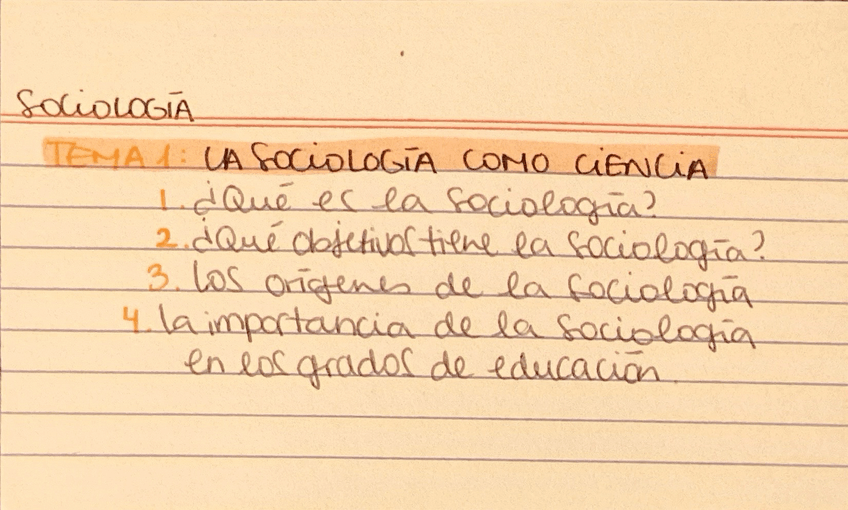 SOCIOLOGÍA
TEMA 1: LA SOCIOLOGÍA COMO CIENCIA
1. ¿Qué es la sociología?
2. ¿Qué objetivos tiene la sociología?
3. Los orígenes de la sociología
4. La importancia de la sociología
en los grados de educación.